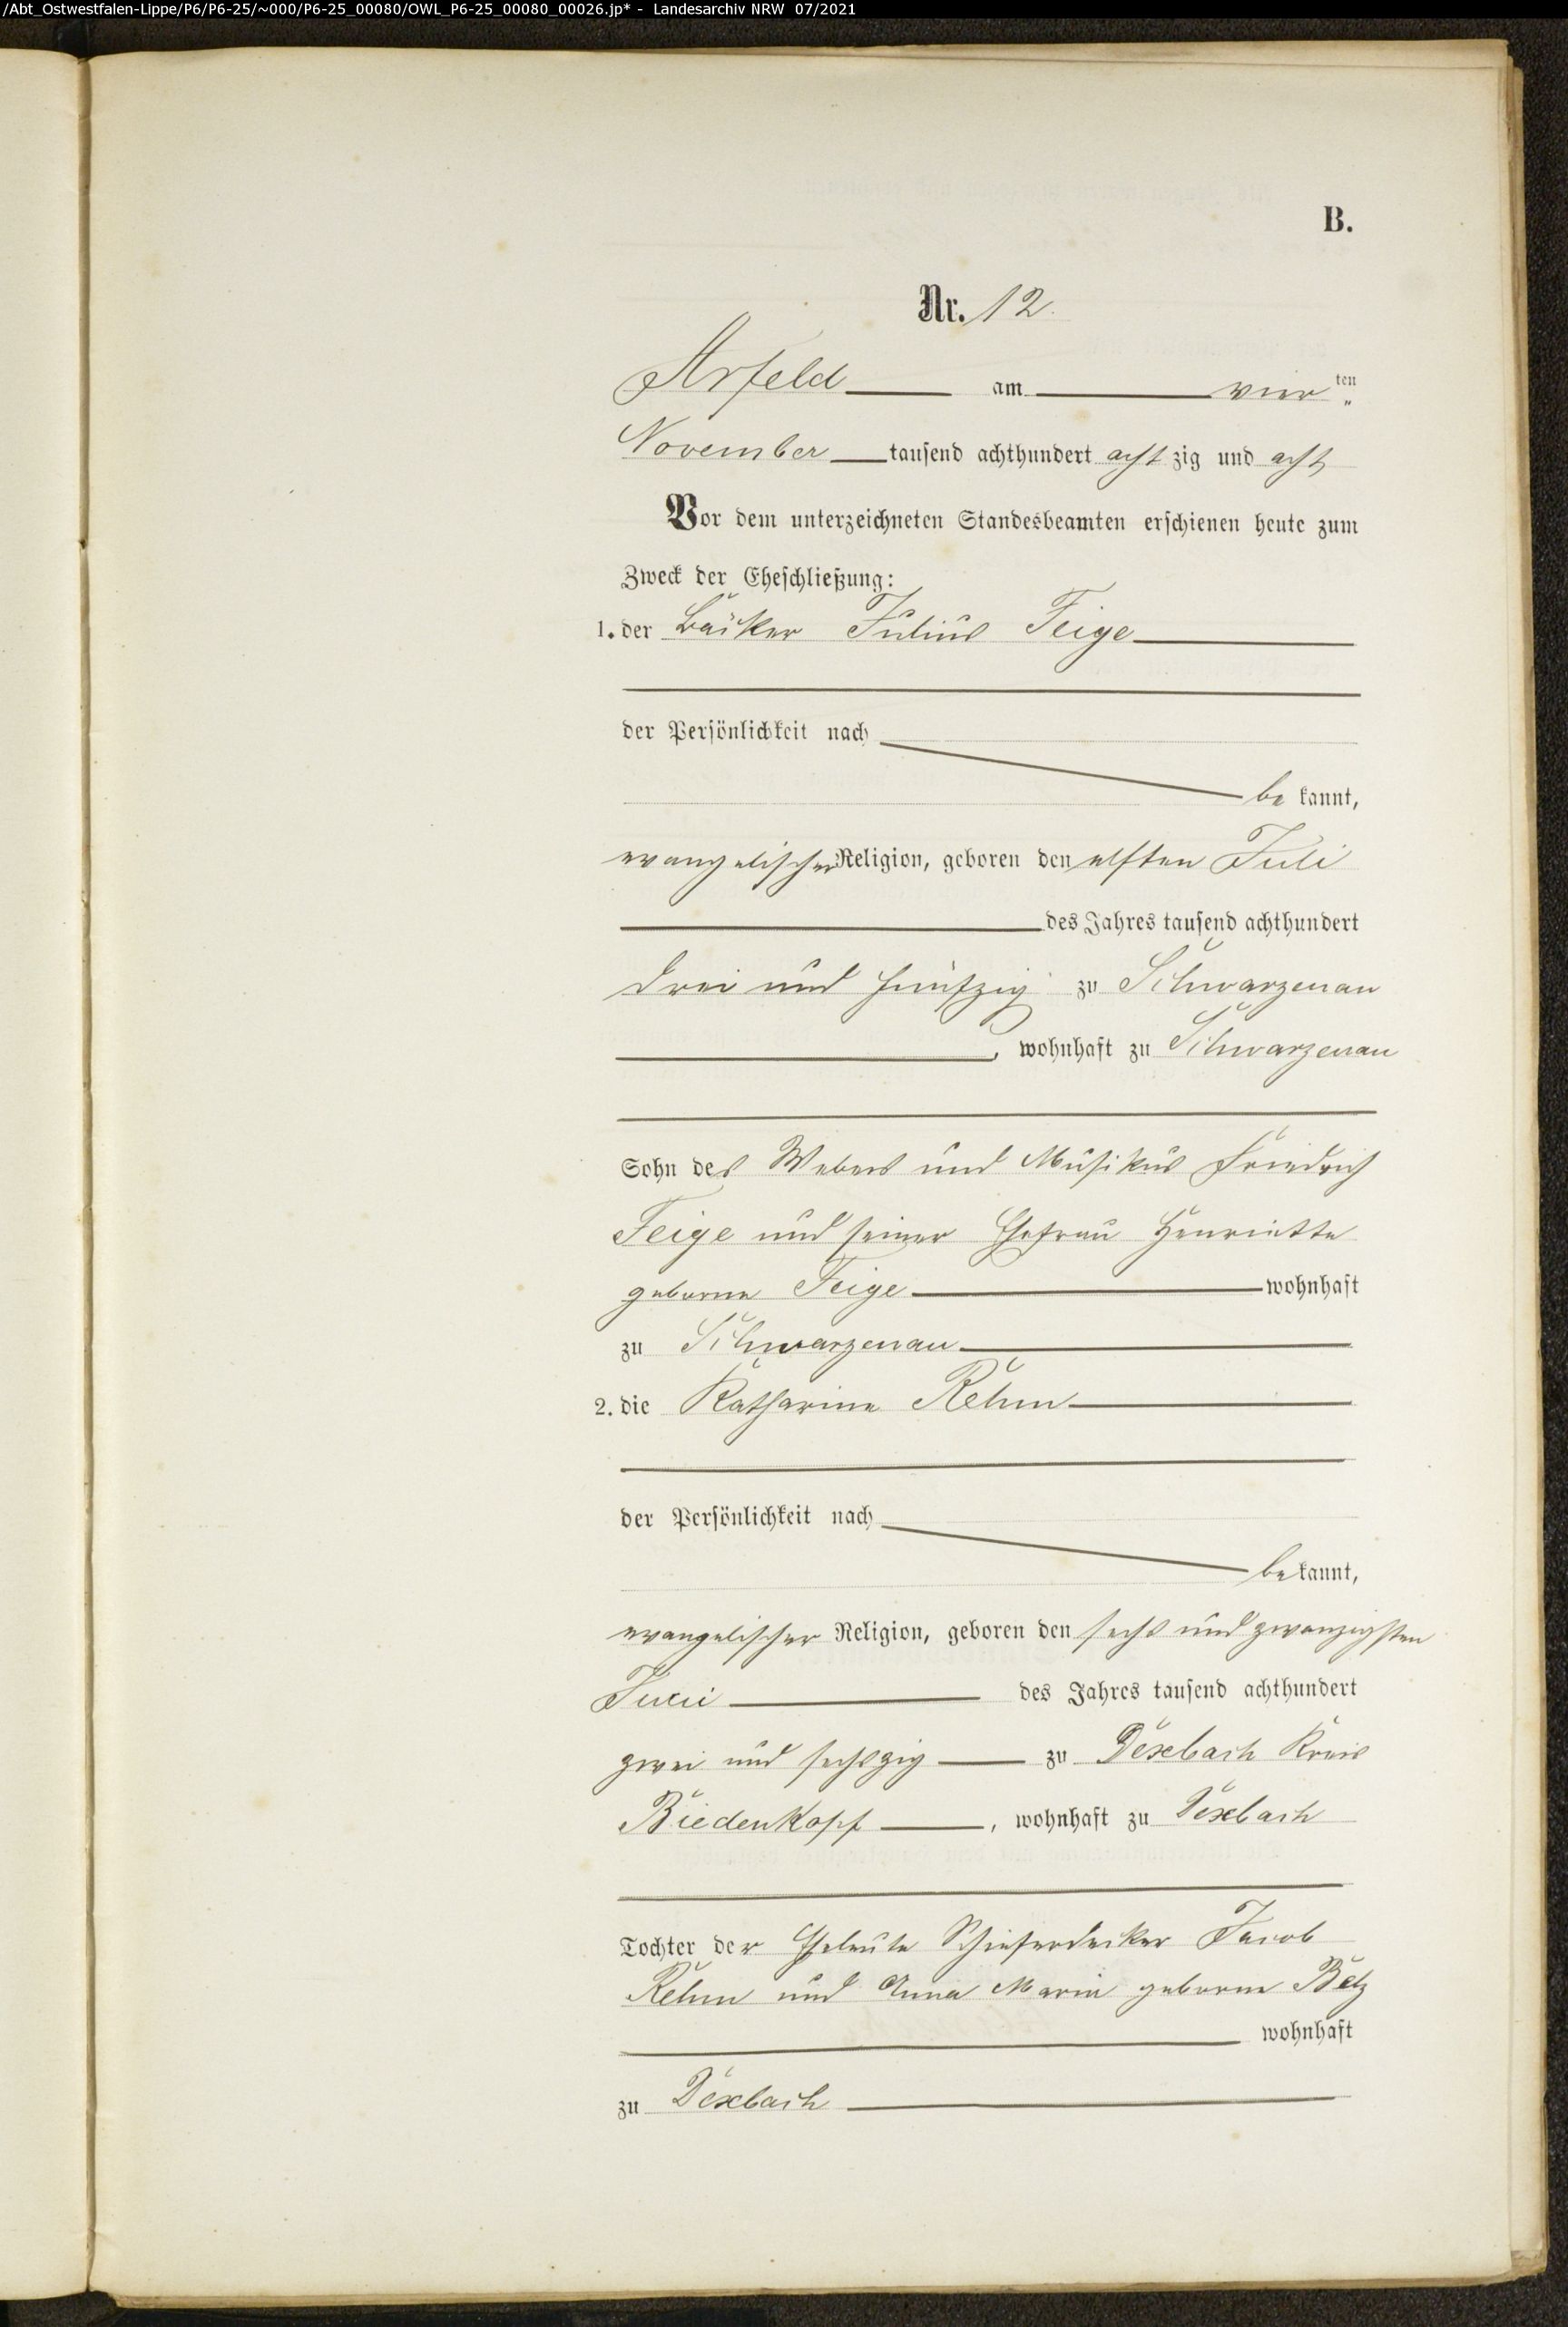 /Abt_Ostwestfalen-Lippe/P6/P6-25/~000/P6-25_00080/OWL_P6-25_00080_00026.jp* - Landesarchiv NRW 07/2021
B.
Nr. 12.
Arfeld am vier ten
November tausend achthundert acht zig und acht
Vor dem unterzeichneten Standesbeamten erschienen heute zum
Zweck der Eheschließung:
1. der Bäcker Julius Feige
der Persönlichkeit nach
be kannt,
evangelischer Religion, geboren den elften Juli
des Jahres tausend achthundert
drei und fünfzig zu Schwarzenau
, wohnhaft zu Schwarzenau
Sohn des Webers und Musikus Friedrich
Feige und seiner Ehefrau Henriette
geborne Feige wohnhaft
zu Schwarzenau
2. die Katharine Rehm
der Persönlichkeit nach
be kannt,
evangelischer Religion, geboren den sechs und zwanzigsten
Juni des Jahres tausend achthundert
zwei und sechszig zu Dexbach Kreis
Biedenkopf , wohnhaft zu Dexbach
Tochter der Eheleute Schieferdecker Jacob
Rehm und Anna Maria geborne Belz
wohnhaft
zu Dexbach